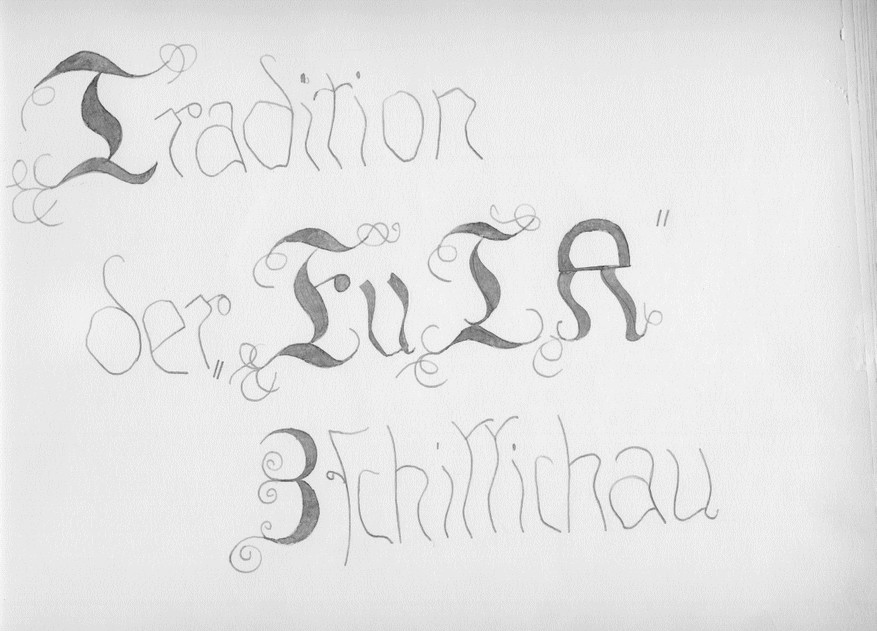 Tradition
der „FuTA"
Zschillichau